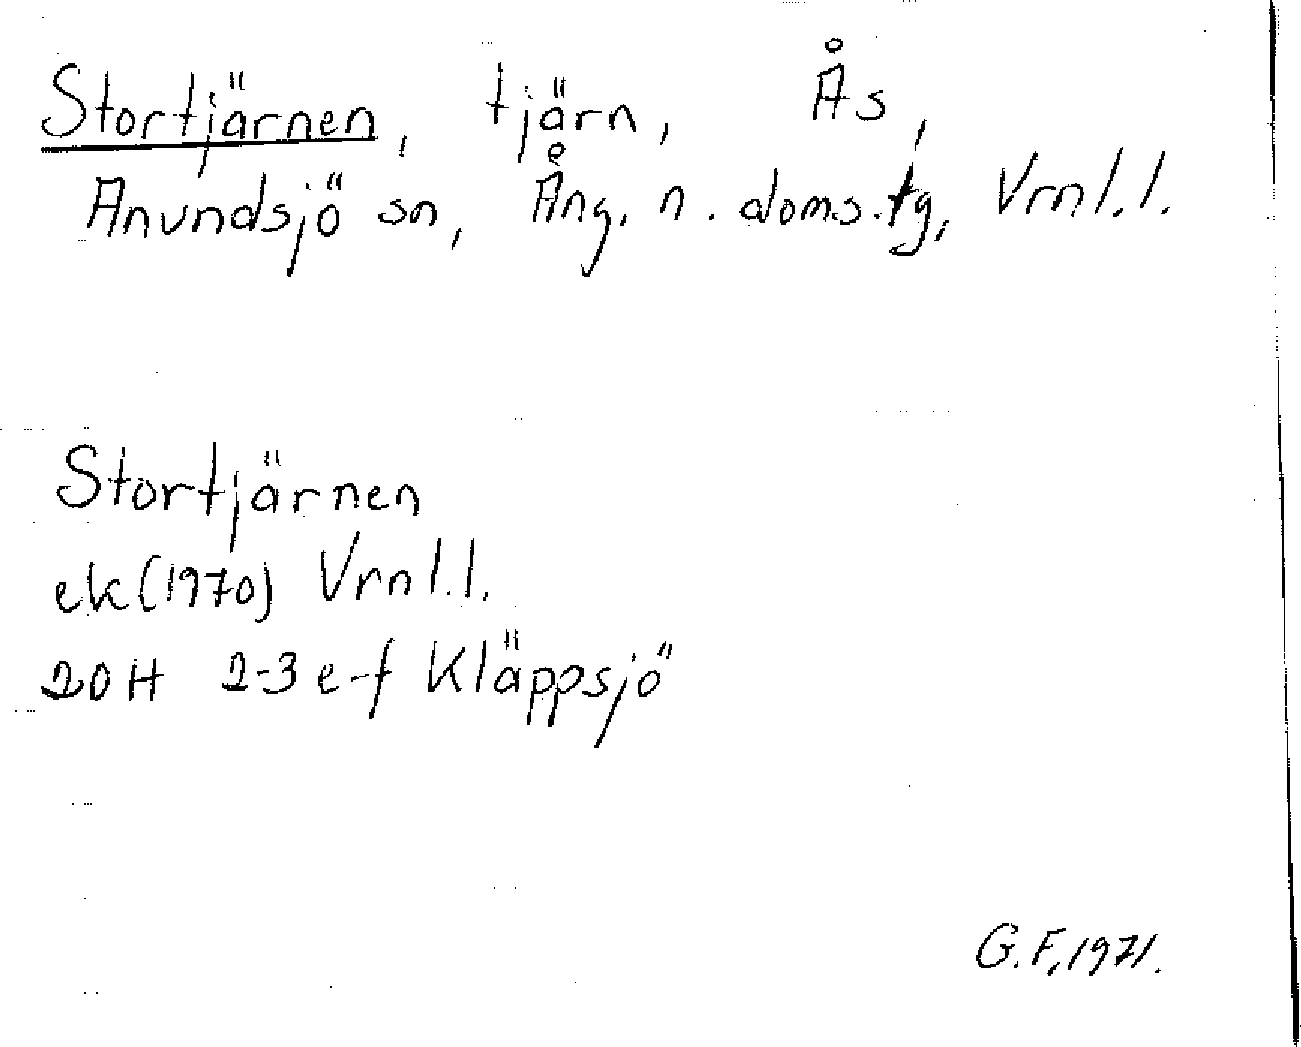 Stortjärnen, tjärn, Ås,
Anundsjö sn, Ång. n. doms.tg, Vrnl.l.
Stortjärnen
ek(1970) Vrnl.l.
20H 2-3 e-f Kläppsjö
G.F, 1971.